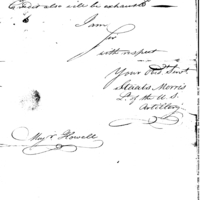 Credit also will be exhausted
I am
Sir
with respect
Your Obt. Servt.
Staats Morris
Lt. of the U. S.
Artillery
May Howell